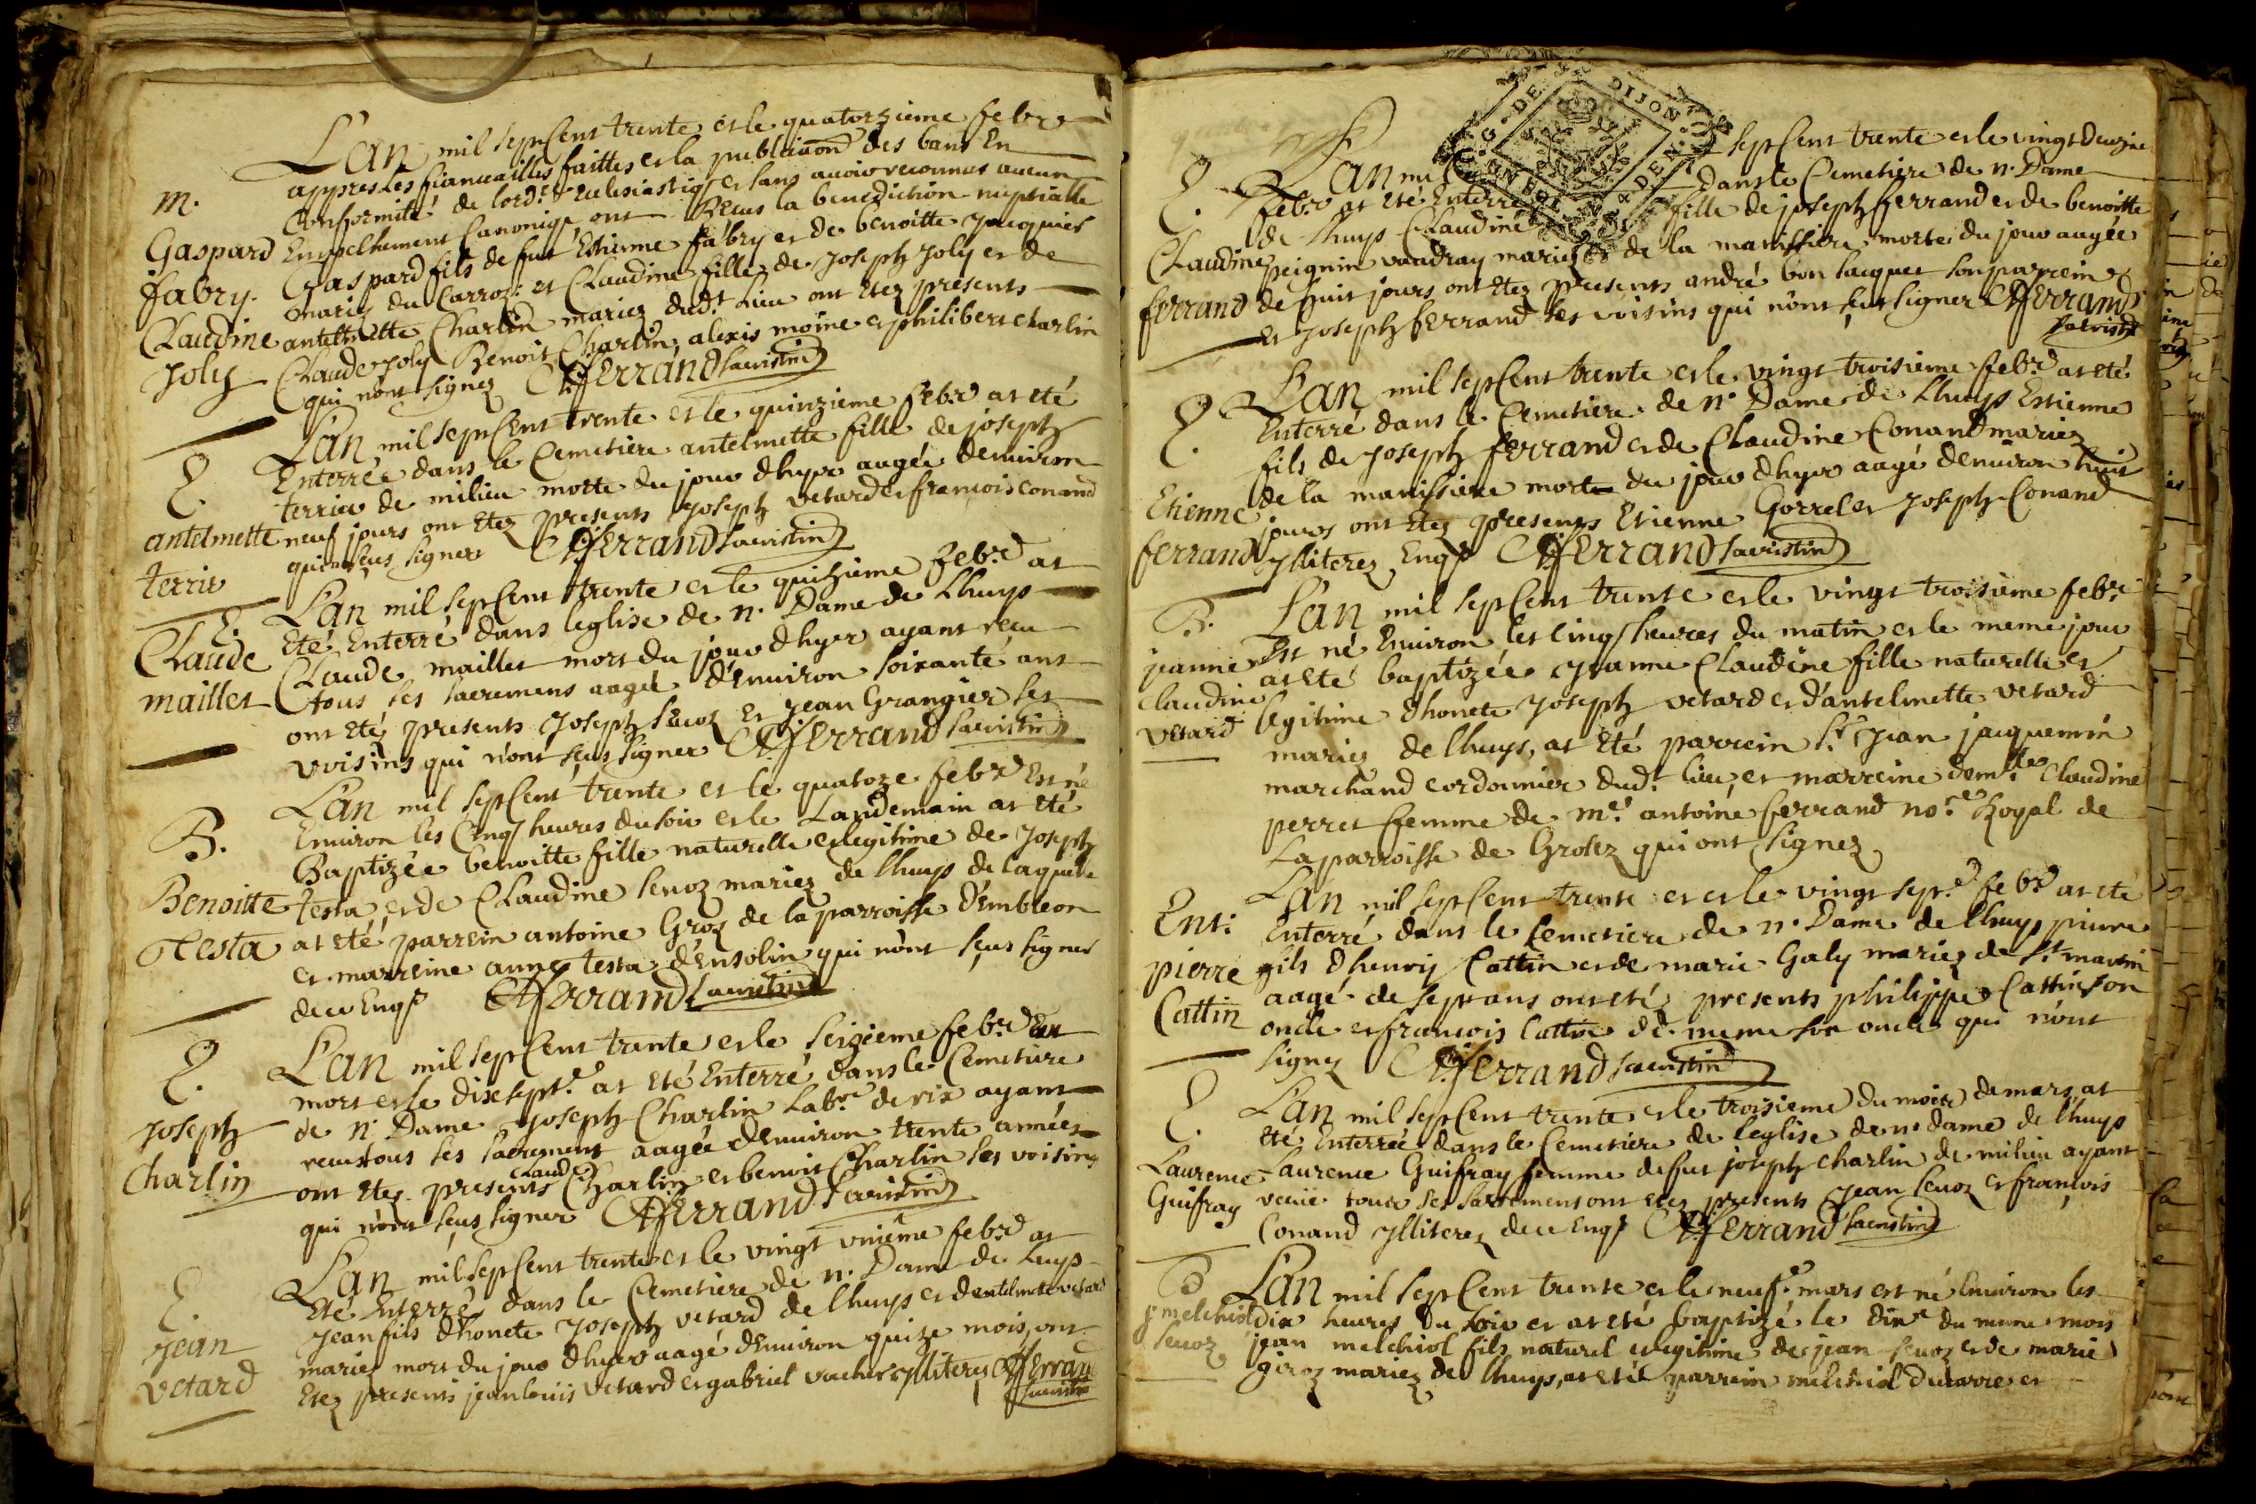 m.
Gaspard
fabry.
Claudine
Joly
Lan mil sept Cent trente et le quatorzieme febre
appres les fiancailles faittes et la publication des bans En
Conformité de lord.e Eclesiastiq et sans avoir reconnus aucun
Empechement Canoniqe ont Recus la benediction nuptialle
Gaspard fils de fut Estienne fabry et de benoitte Jacquier
mariez du Carroz: et Claudine fille de Joseph Joly et de
antelmette Charlin mariez dud.t Lieu ont Etez presents
Claude Joly Benoit Charlin, alexis moine et philibert charlin
qui n'ont signez Ferrand sacristin
E.
antelmette
terrier
Lan mil sept Cent trente et le quinzieme feb.re at eté
Enterrée dans le Cemetiere antelmette fille de joseph
terrier de milieu morte du jour dhyer aagée denviron
neuf jours ont Etez presents Joseph vetard et francois Conand
qui seus signer Ferrand sacristin
E.
Claude
maillet
Lan mil sept Cent trente et le quizieme feb.re at
Eté Enterré dans leglise de n. Dame de Lhuys
Claude maillet mort du jour dhyer ayant recu
tous ses sacremens aagée d'Environ soixante ans
ont Eté presents Joseph Sevoz Et Jean Grangier ses
voisins qui n'ont seus signer Ferrand sacristin
B.
Benoitte
Testa
Lan mil sept Cent trente et le quatoze feb.re Est né
Environ les Cinq heures du soir et le Landemain at eté
Baptizée benoitte fille naturelle et legitime de Joseph
testa et de Claudine Sevoz mariez de Lhuys de laquelle
at eté parrein antoine Groz de la parroisse d'Embleon
et marreine anne testa d'ensolin qui n'ont seus signer
de ce Enqs Ferrand sacristin
E.
Joseph
Charlin
Lan mil sept Cent trente et le seizieme feb.re Est
mort et le dixsept.e at eté Enterré dans le Cemetiere
de n. Dame Joseph Charlin Lab.re de rix ayant
receu tous ses sacrement aagée denviron trente années
ont etez presents Claude Charlin et benoit Charlin ses voisins
qui n'ont seus signer Ferrand sacristin
E.
Jean
vetard
Lan mil sept Cent trente et le vingt unieme feb.re at
Eté Enterré dans le Cemetiere de n. Dame de Luys
Jean fils dhonete Joseph vetard de lhuys et dentelmete vetard
mariez mort du jour dhyer aagé denviron quize mois, ont
Etez presents jean louis vetard et gabriel vacher ylliterez Ferrand
sacristin
E.
Claudine
ferrand
Lan mil sept Cent trente et le vingt deuzie
feb.re at eté Enterré dans le Cemetiere de n. Dame
de lhuys Claudine fille de joseph ferrand et de benoitte
peignin vaudray mariez de la manissiere morte du jour aagée
de huit jours ont etez presents andré bon jacquet son parrein
et Joseph ferrand ses voisins qui n'ont seut signer Ferrand
sacristin
E.
Etienne
ferrand
Lan mil sept Cent trente et le vingt troisieme feb.re at eté
Enterré dans le Cemetiere de n. Dame de Lhuys Estienne
fils de Joseph ferrand et de Claudine Conand mariez
de la manissiere mort du jour dhyer aagé denviron huit
jours ont etez presents Etienne Gorrel et Joseph Conand
ylliterez Enqs Ferrand sacristin
B.
jeanne
Claudine
vetard
Lan mil sept Cent trente et le vingt troisieme feb.re
Est né Environ les Cinq heures du matin et le meme jour
at eté baptizée jeanne Claudine fille naturelle et
legitime dhonete Joseph vetard et d'antelmette vetard
mariez de lhuys, at eté parrein S.r Jean jacquemin
marchand cordonnier dud.t lieu, et marreine dem.lle Claudine
perret femme de m.e antoine ferrand no.re Royal de
La parroisse de Groslez qui ont signez
Ent:
pierre
Cattin
Lan mil sept Cent trente et et le vingt sept.e feb.re at eté
Enterré dans le Cemetiere de n. Dame de lhuys pierre
fils dhenry Cattin et de marie Galy mariez de S.t martin
aagé de sept ans ont eté presents philippe Cattin son
oncle et francois Cattin de meme son oncle qui n'ont
signez Ferrand sacristin
E.
Laurence
Guifray
Lan mil sept Cent trente et le troisieme du mois de mars at
eté Enterrée dans le Cemetiere de leglise de n. dame de lhuys
Laurence Guifray femme de fut joseph charlin de milieu ayant
receu tous ses sacrements ont etez presents Jean sevoz et francois
Conand ylliterez de ce Enqs Ferrand sacristin
B
j. melchiol
sevoz
Lan mil sept Cent trente et le neuf.e mars est né Environ les
dix heures du soir et at eté baptizé le dix.e du meme mois
jean melchiol fils naturel et legitime de jean sevoz et de marie
giroz mariez de lhuys, at eté parrein melchiol ducarre et